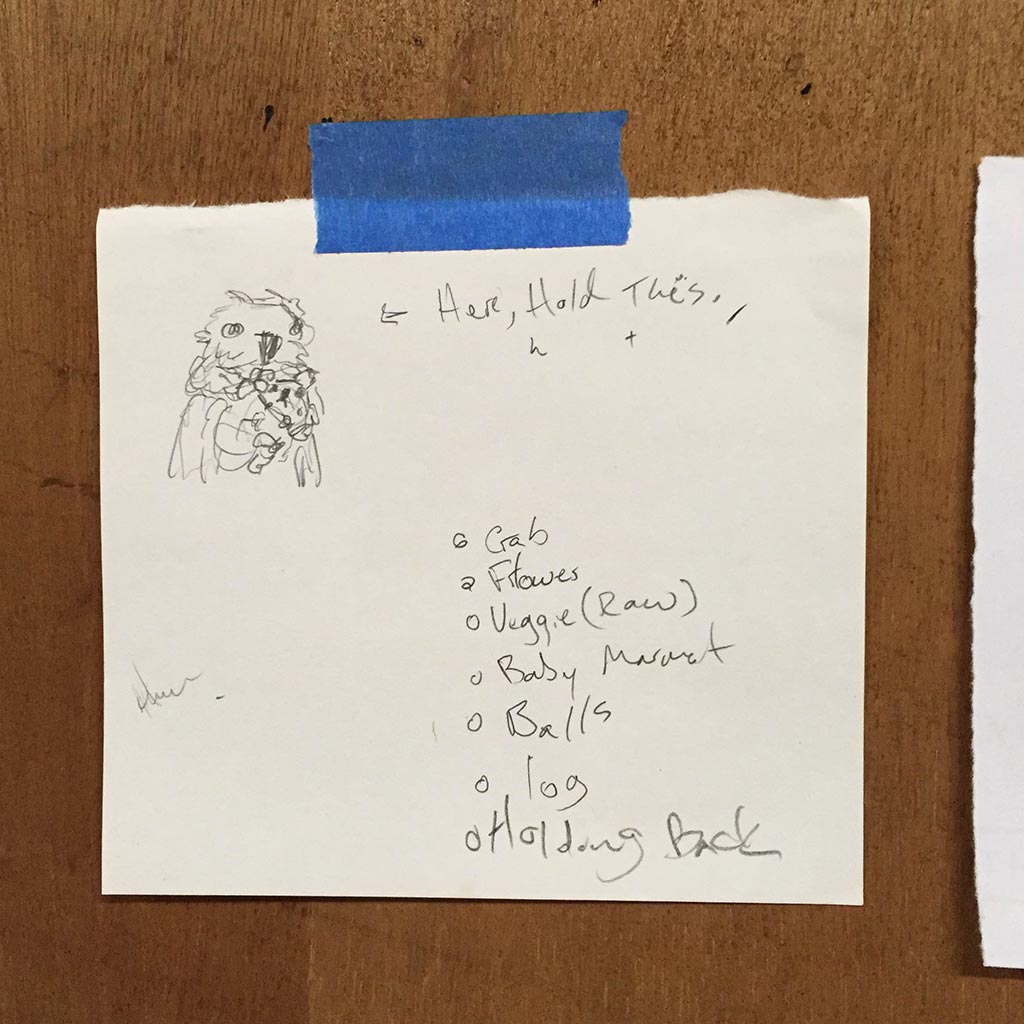 ← Here, Hold This.,
h t
o Crab
o Flower
o Veggie (Raw)
o Baby Marmot
o Balls
o log
o Holding Back